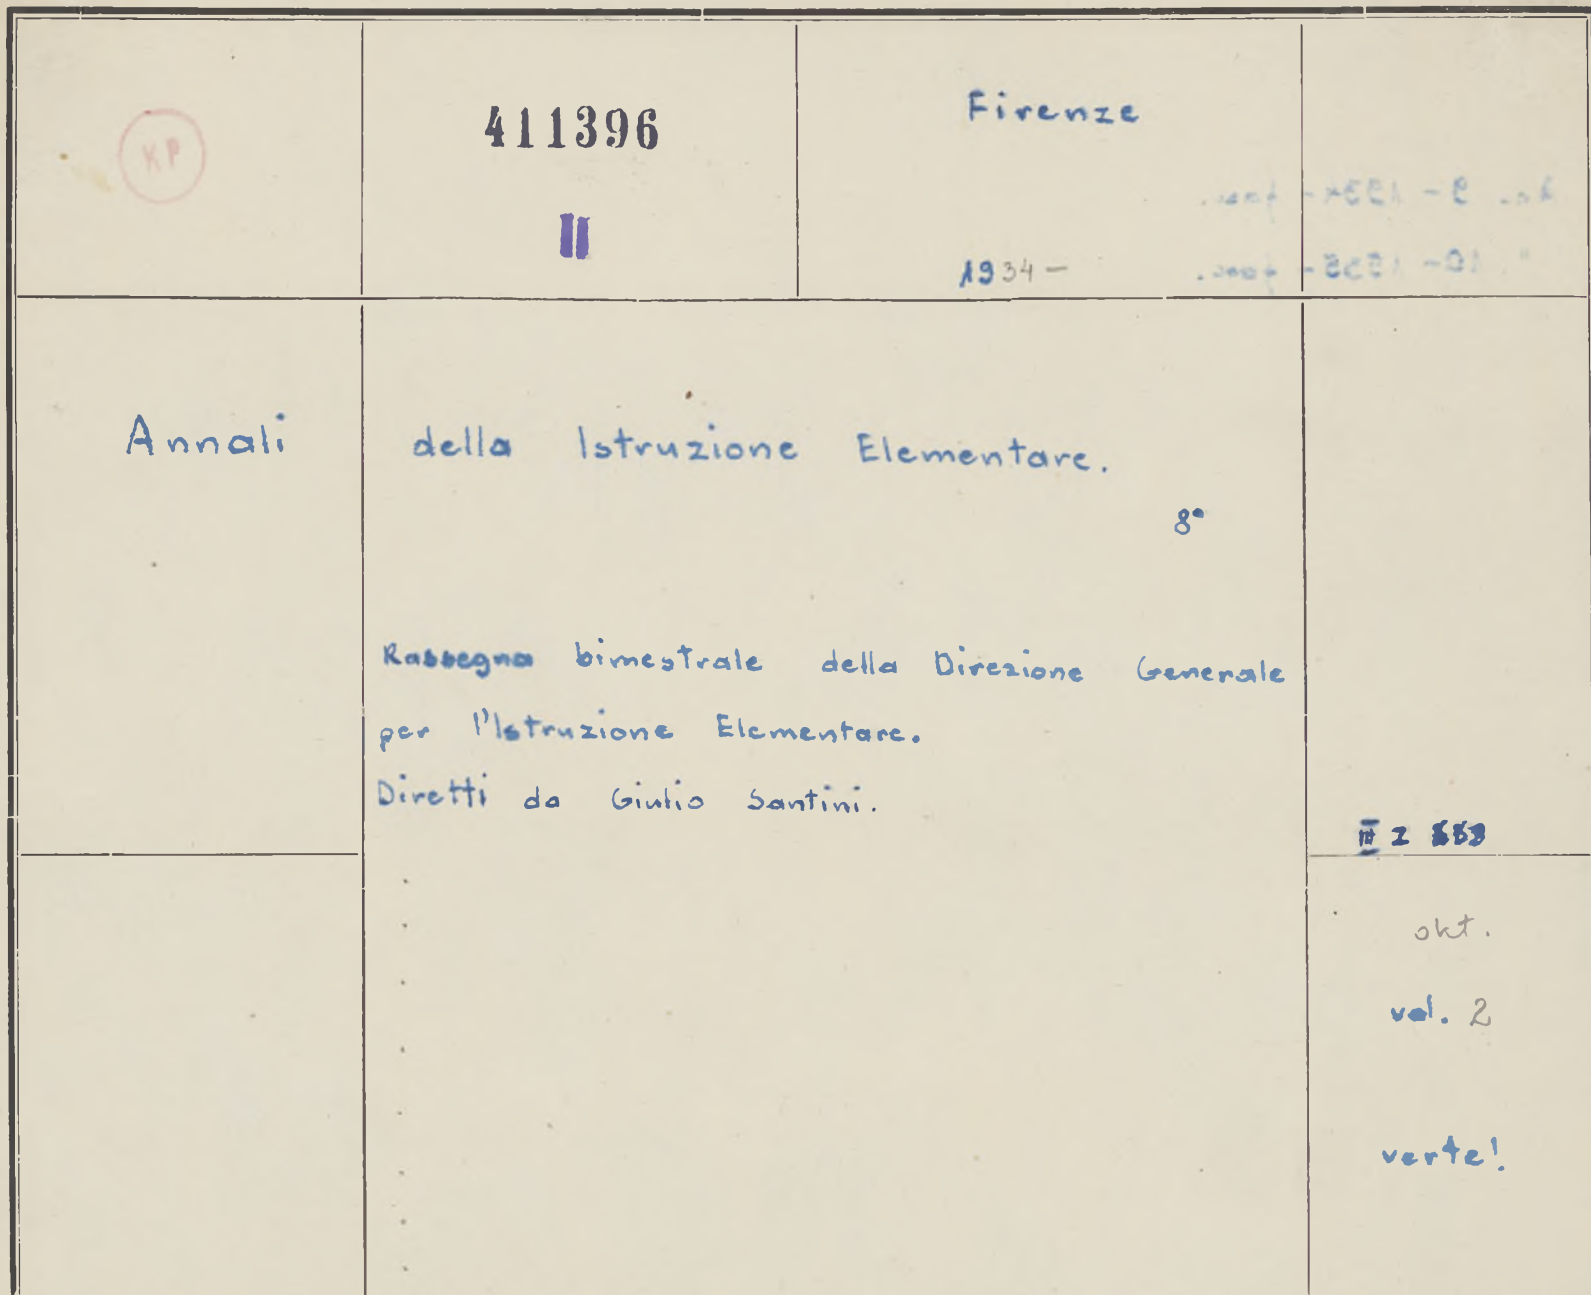 KP
411396
II
Firenze
1934-
Annali della Istruzione Elementare.
8°
Rassegna bimestrale della Direzione Generale
per l'Istruzione Elementare.
Diretti da Giulio Santini.
III Z
okt.
vol. 2
verte!